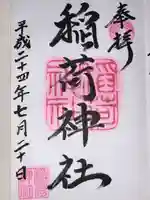 奉拝
稲荷神社
平成二十四年七月二十日